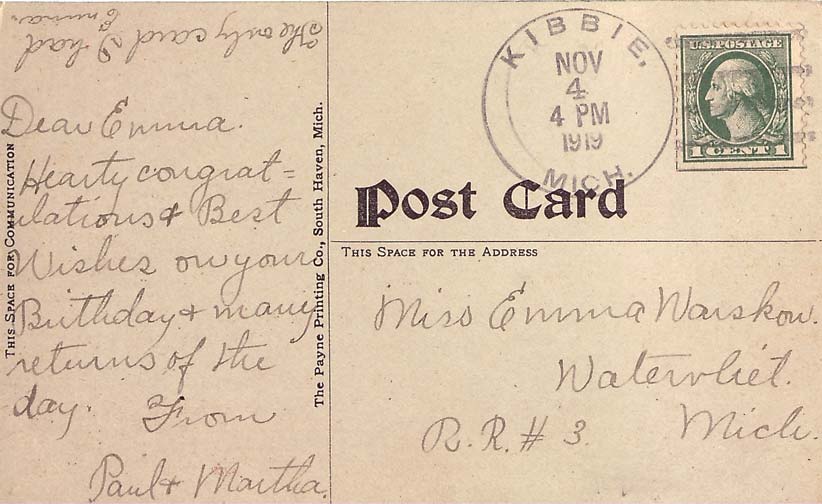 The only card I had
Emma.
Dear Emma.
Hearty congrat=
ulations & Best
Wishes on your
Birthday & many
returns of the
day. From
Paul & Martha.
THIS SPACE FOR COMMUNICATION
The Payne Printing Co., South Haven, Mich.
KIBBIE,
NOV
4
4 PM
1919
MICH.
U.S. POSTAGE
1 CENT 1
Post Card
THIS SPACE FOR THE ADDRESS
Miss Emma Warskow.
Watervliet.
R.R. # 3. Mich.